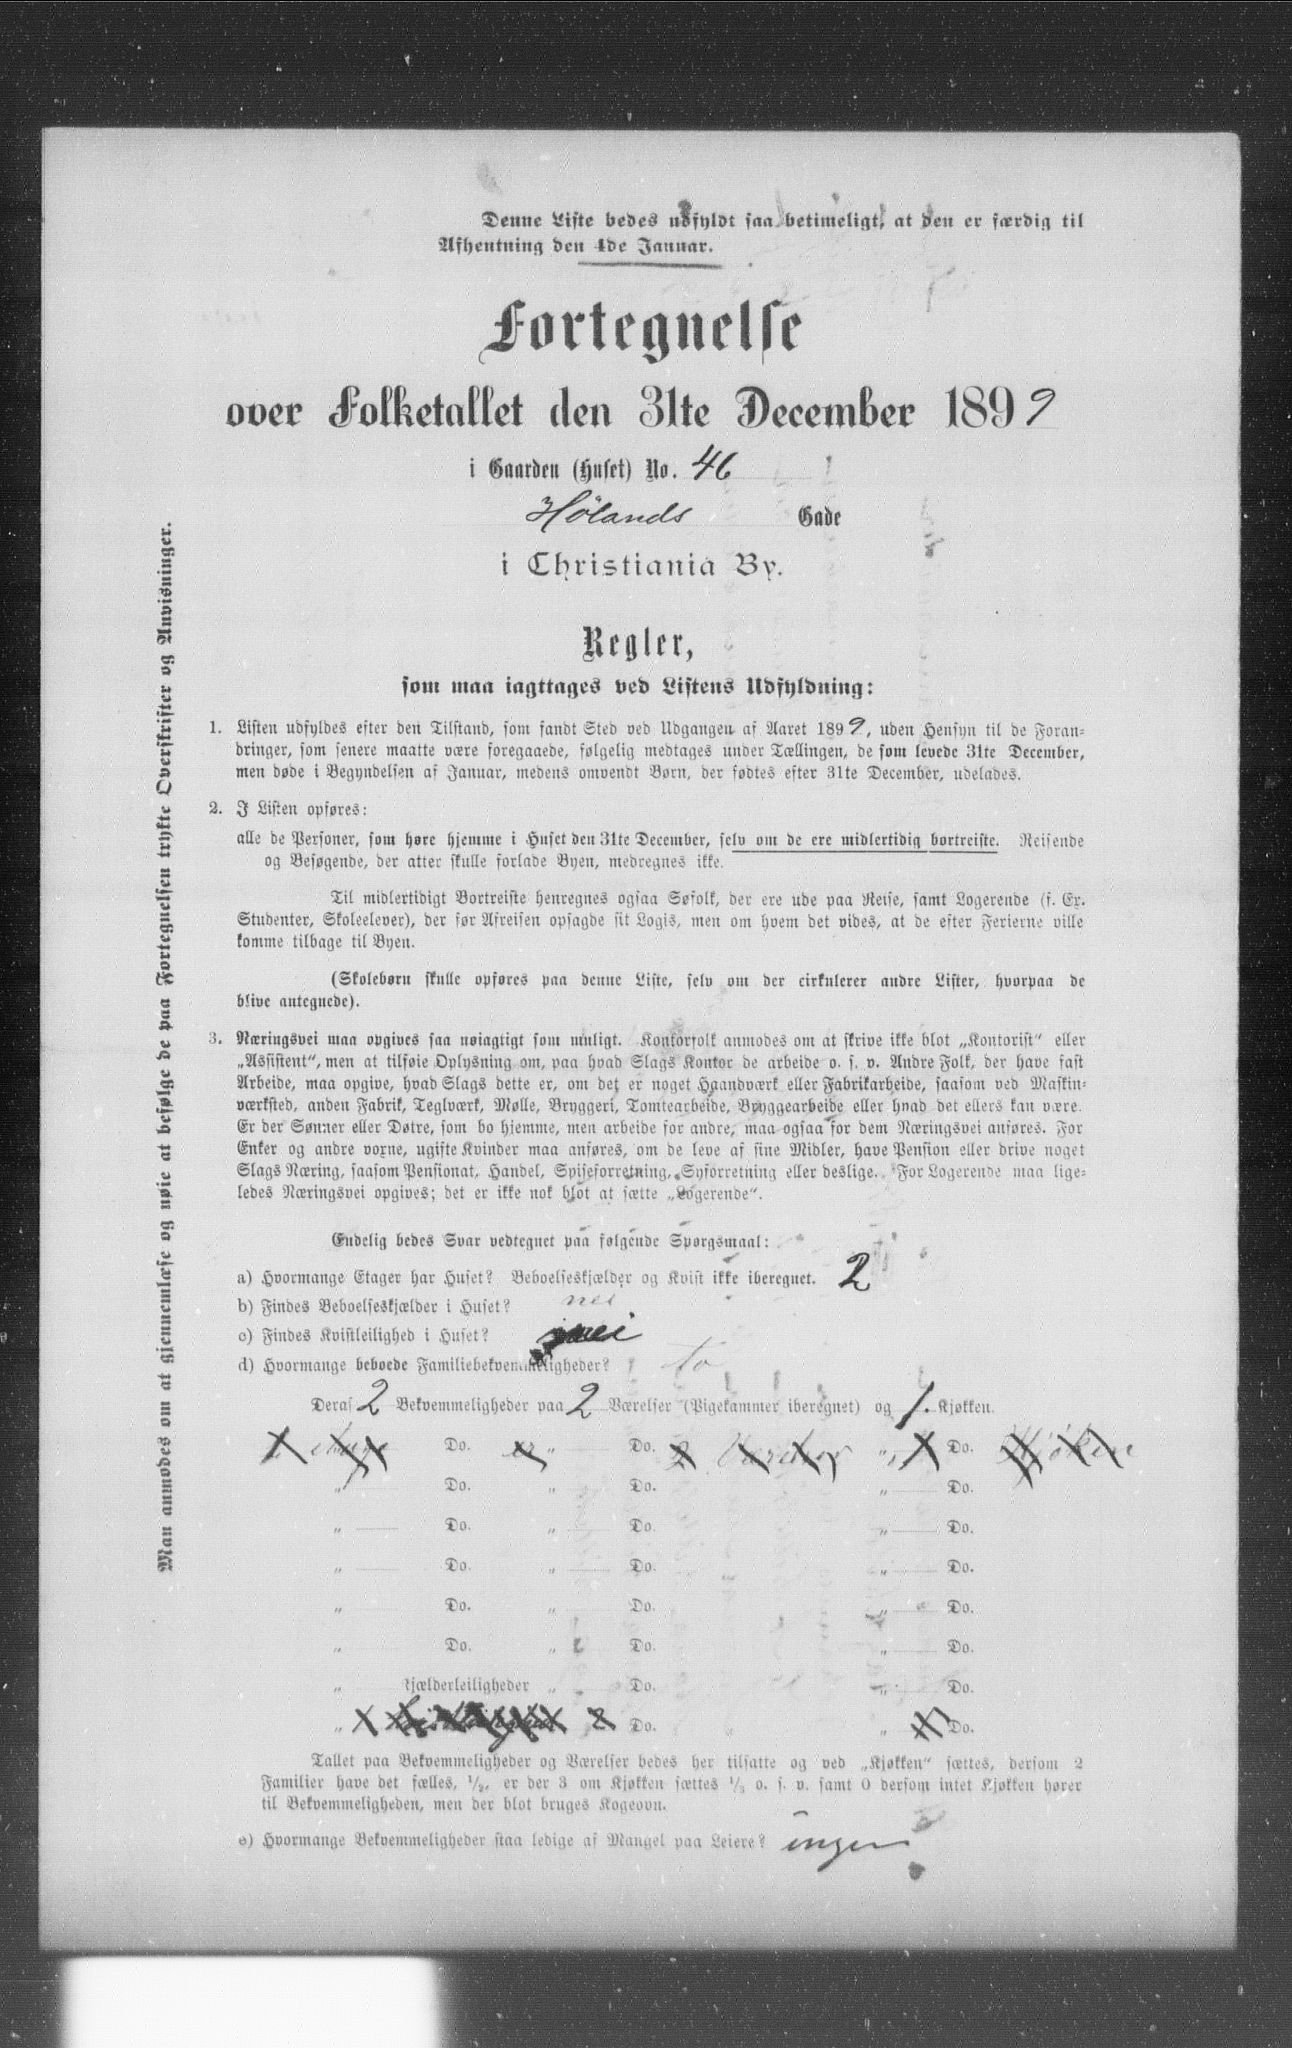 Denne Liste bedes udfyldt saa betimeligt, at den er færdig til
Afhentning den 4de Januar.
Fortegnelse
over Folketallet den 31te December 1899
i Gaarden (Huset) No. 46
Hölands Gade
i Christiania By.
Regler,
som maa iagttages ved Listens Udfyldning:
1. Listen udfyldes efter den Tilstand, som fandt Sted ved Udgangen af Aaret 1899, uden Hensyn til de Foran-
dringer, som senere maatte være foregaaede, følgelig medtages under Tællingen, de som levede 31te December,
men døde i Begyndelsen af Januar, medens omvendt Børn, der fødtes efter 31te December, udelades.
2. I Listen opføres:
alle de Personer, som høre hjemme i Huset den 31te December, selv om de ere midlertidig bortreiste. Reisende
og Besøgende, der atter skulle forlade Byen, medregnes ikke.
Til midlertidigt Bortreiste henregnes ogsaa Søfolk, der ere ude paa Reise, samt Logerende (f. Ex.
Studenter, Skoleelever), der før Afreisen opsagde sit Logis, men om hvem det vides, at de efter Ferierne ville
komme tilbage til Byen.
(Skolebørn skulle opføres paa denne Liste, selv om der cirkulerer andre Lister, hvorpaa de
blive antegnede).
3. Næringsvei maa opgives saa nøiagtigt som muligt. Kontorfolk anmodes om at skrive ikke blot „Kontorist“ eller
„Assistent“, men at tilføie Oplysning om, paa hvad Slags Kontor de arbeide o. s. v. Andre Folk, der have fast
Arbeide, maa opgive, hvad Slags dette er, om det er noget Haandværk eller Fabrikarbeide, saasom ved Maskin-
værksted, anden Fabrik, Teglværk, Mølle, Bryggeri, Tomtearbeide, Bryggearbeide eller hvad det ellers kan være.
Er der Sønner eller Døtre, som bo hjemme, men arbeide for andre, maa ogsaa for dem Næringsvei anføres. For
Enker og andre voxne, ugifte Kvinder maa anføres, om de leve af sine Midler, have Pension eller drive noget
Slags Næring, saasom Pensionat, Handel, Spiseforretning, Syforretning eller deslige. For Logerende maa lige-
ledes Næringsvei opgives; det er ikke nok blot at sætte „Logerende“.
Endelig bedes Svar vedtegnet paa følgende Spørgsmaal:
a) Hvormange Etager har Huset? Beboelseskjælder og Kvist ikke iberegnet. 2
b) Findes Beboelseskjælder i Huset? nei
c) Findes Kvistleilighed i Huset? nei
d) Hvormange beboede Familiebekvemmeligheder? to
Deraf 2 Bekvemmeligheder paa 2 Værelser (Pigekammer iberegnet) og 1. Kjøkken.
Do. „ Do. „ Do.
„ Do. „ Do. „ Do.
„ Do. „ Do. „ Do.
„ Do. „ Do. „ Do.
„ Do. „ Do. „ Do.
„ Do. „ Do. „ Do.
„ Kjælderleiligheder „ Do. „ Do.
„ 2 Do. „ Do.
Tallet paa Bekvemmeligheder og Værelser bedes her tilsatte og ved „Kjøkken“ sættes, dersom 2
Familier have det fælles, 1/2, er der 3 om Kjøkken sættes 1/3 o. s. v. samt 0 dersom intet Kjøkken hører
til Bekvemmeligheden, men der blot bruges Kogeovn.
e) Hvormange Bekvemmeligheder staa ledige af Mangel paa Leiere? ingen
Man anmodes om at gjennemlæse og nøie at befølge de paa Fortegnelsen trykte Overskrifter og Anvisninger.